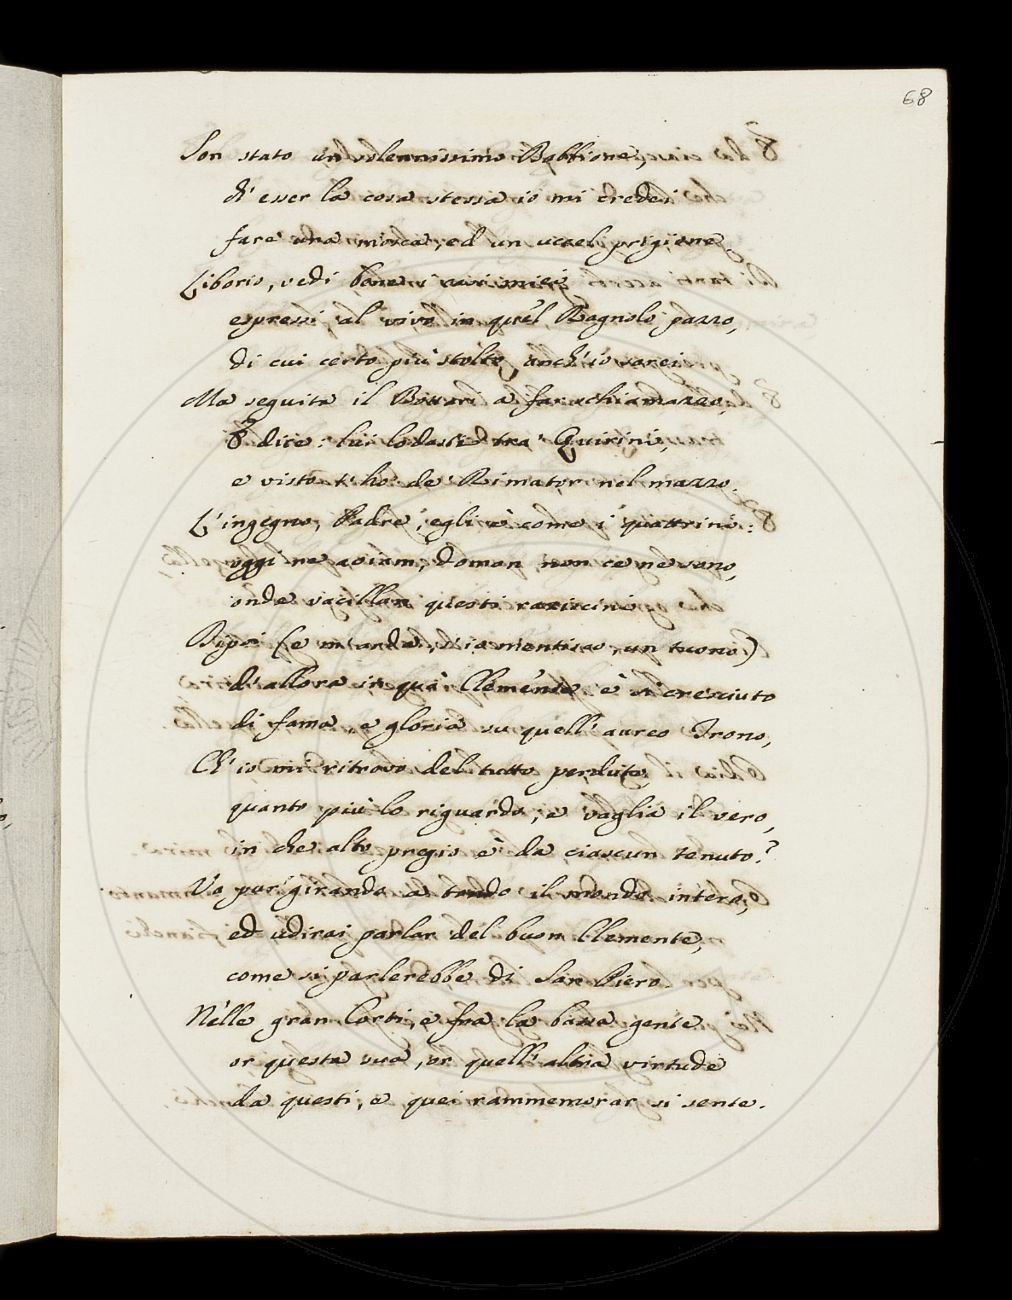 68
Son stato un solennissimo Babbione,
d'esser la cosa stessa io mi credei
fare una mosca, ed un uccel prigione
Liborio, vedi bene i casi miei
espressi al vivo in quel Bagnolo pazzo,
di cui certo più stolto anch'io sarei.
Ma seguita il Bottari a far schiamazzo,
E dice: lui lodasti tra' Quirini,
e visto t'ho de' Rimator nel mazzo.
L'ingegno, Padre, egli è come i quattrini:
oggi ne aviam, doman non ce ne sono,
onde vacillan questi raziocini
Dipoi (e m'anda, s'io mentisco, un tuono)
d'allora in quà Clemente è sì cresciuto
di fama, e gloria su quell'aureo Trono,
Ch'io mi ritrovo del tutto perduto
quanto più lo riguardo; e vaglia il vero,
in che alto pregio è da ciascun tenuto?
Va pur girando a tondo il mondo intero,
ed udirai parlar del buon Clemente,
come si parlerebbe di San Piero.
Nelle gran Corti, e fra la bassa gente
or questa sua, or quell'altra virtude
da questi, e quei rammemorar si sente.